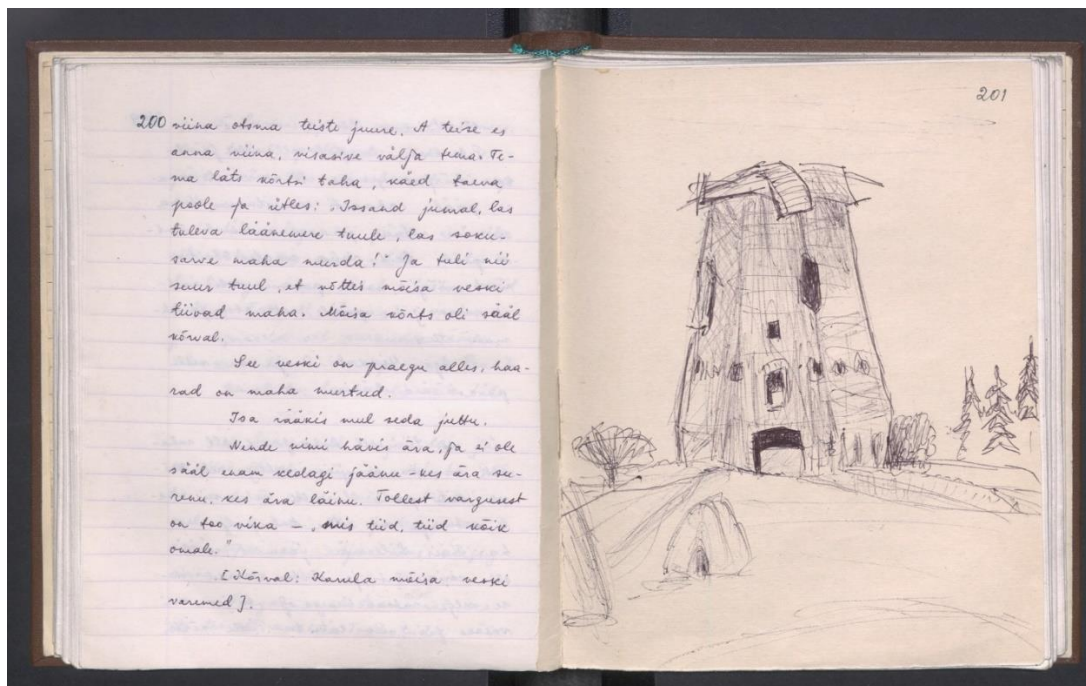 200 viina otsma teiste juure. A teise es
anna viina, visasive välja tema. Te-
ma läts kõrtsi taha, käed taeva
poole ja ütles: „Issand jumal, las
tuleva läänemere tuule, las soku-
sarve maha murda!" Ja tuli nii
suur tuul, et võttis mõisa veski
tiivad maha. Mõisa kõrts oli sääl
kõrval.
See veski on praegu alles, haa-
rad on maha murtud.
Isa rääkis mul seda juttu.
Nende nimi hävis ära, ja ei ole
sääl enam kedagi jäänu - kes ära su-
renu, kes ära läinu. Tollest vargusest
on too vika – „mis tiid, tiid kõik
omale."
[Kõrval: Karula mõisa veski
varemed].
201